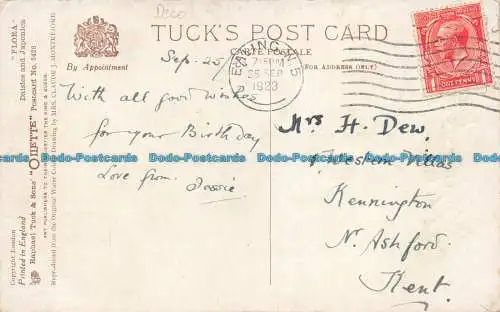 Dece
TUCK'S POST CARD
CARTE POSTALE
By Appointment
(FOR ADDRESS ONLY)
Sep. 25/
7:15 PM
25 SEP
1923
ONE PENNY
With all good wishes
for your Birthday
Love from Jessie
Mrs H. Dew,
Villas
Kennington
N. Ashford.
Kent.
"FLORA"
Daisies and Japonica
Raphael Tuck & Sons' "OILETTE" Postcard No. 3426
ART PUBLISHERS TO THEIR MAJESTIES THE KING & QUEEN
Repr-duced from the Original Water Colour Drawing by MRS. CLAUDE J. MONTEFIORE
Copyright London
Printed in England
Dodo-Postcards Dodo-Postcards Dodo-Postcards Dodo-Postcards Dodo-Postcards